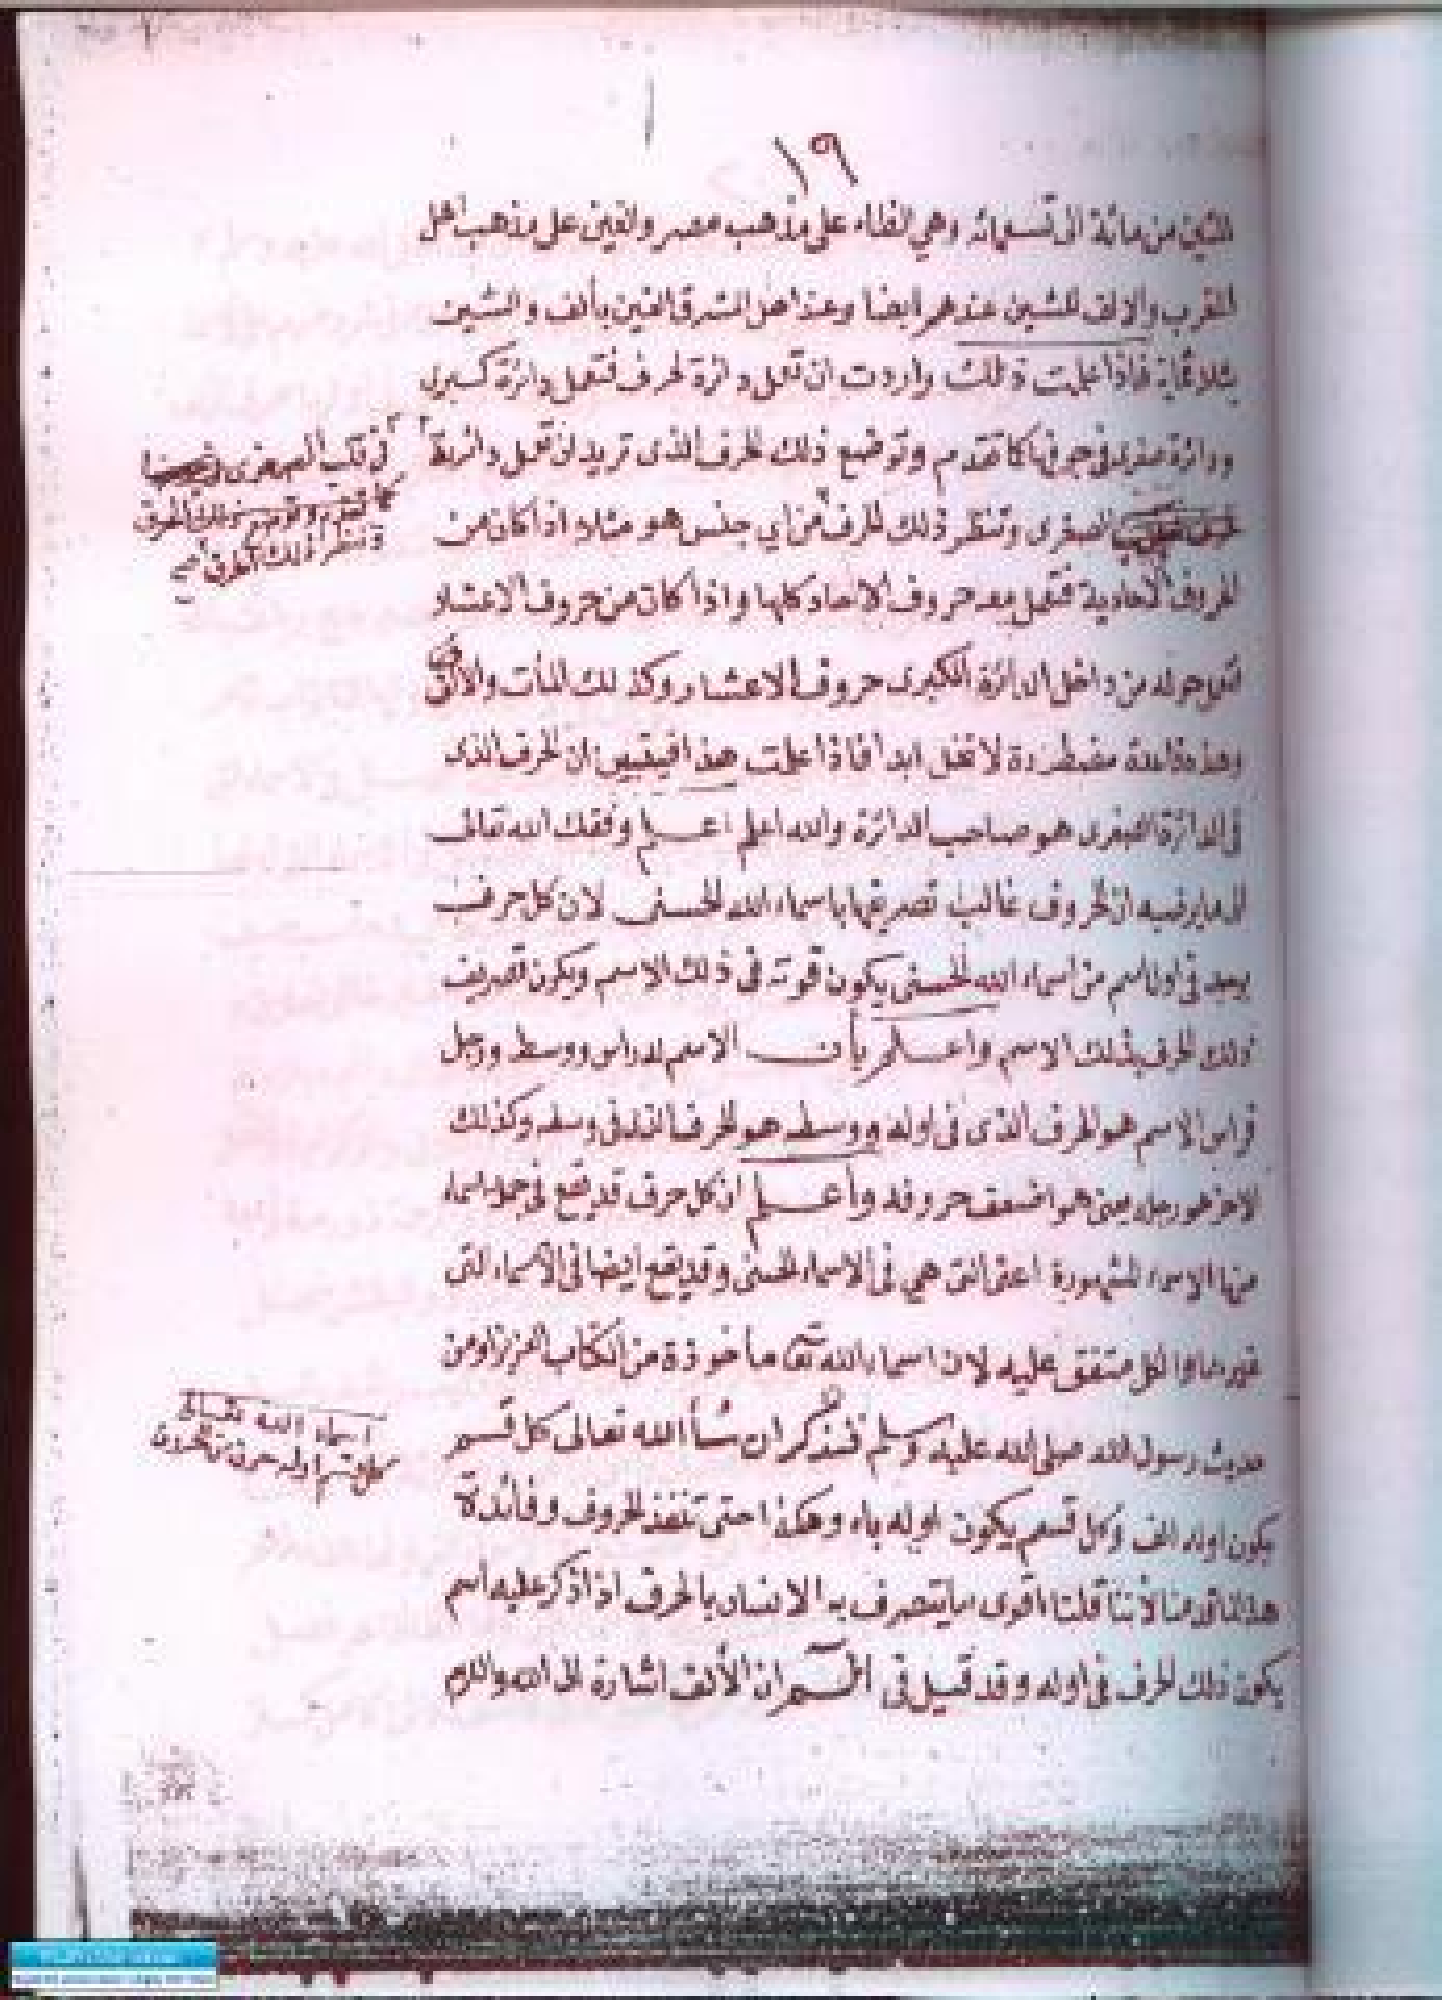 ١٩
للمئين من مائة الى تسعمائه وهي الظاء على مذهب مصر والغين على مذهب اهل
المغرب والالف للشين عندهم ايضا وعند اهل المشرق الغين بألف والشين
بثلاثماية فاذا علمت ذلك واردت ان تعمل دائرة لحرف فتعمل دائرة كبيرى
ودائرة صغرى في جوفها كما تقدم وتوضع ذلك الحرف الذى تريد ان تعمل دائرتة
في قلب الصغرى
كما تقدم وتوضع ذلك الحرف
وتنظر ذلك الحرف
الصغرى وتنظر ذلك الحرف من اي جنس هو مثلا اذا كان من
الحروف الاحادية فتعمل حروف الاحاد كلها واذا كان من حروف الاعشار
فتعمل حوله من داخل الدائرة الكبرى حروف الاعشار وكذلك المأت والالوف
وهذه قاعدة مضطردة لا تختل ابدا فاذا علمت هذا فيتبين ان الحرف الذى
في الدائرة الصغرى هو صاحب الدائرة والله اعلم اعلم وفقك الله تعالى
لما يرضيه ان الحروف غالب تصريفها باسماء الله الحسنى لان كل حرف
يوجد في اول اسم من اسماء الله الحسنى يكون قوته فى ذلك الاسم ويكون تصريف
ذلك الحرف بذلك الاسم واعلم بأن الاسم له راس ووسط ورجل
فراس الاسم هو الحرف الذى فى اوله ووسطه هو الحرف الذى فى وسطه وكذلك
الاخر هو رجله يعنى هو اضعف حروفه وأعلم ان كل حرف قد يقع في جملة اسماء
منها الاسماء المشهورة اعنى التى هي فى الاسماء الحسنى وقد يقع ايضا فى الاسماء التى
غيرها والكل متفق عليه لان اسماء الله تعالى مأخوذة من الكتاب العزيز او من
حديث رسول الله صلى الله عليه وسلم فنذكر ان شأ الله تعالى كل قسم
اسماء الله تعالى
كل قسم اوله حرف من الحروف
يكون اوله الف وكل قسم يكون اوله باء وهكذا حتى تنفذ الحروف وفائدة
هذا لأننا قلنا اقوى ما يتصرف به الانسان بالحرف اذا ذكر عليه اسم
يكون ذلك الحرف في اوله وقد قيل فى الم ان الألف اشارة الى الله واللام